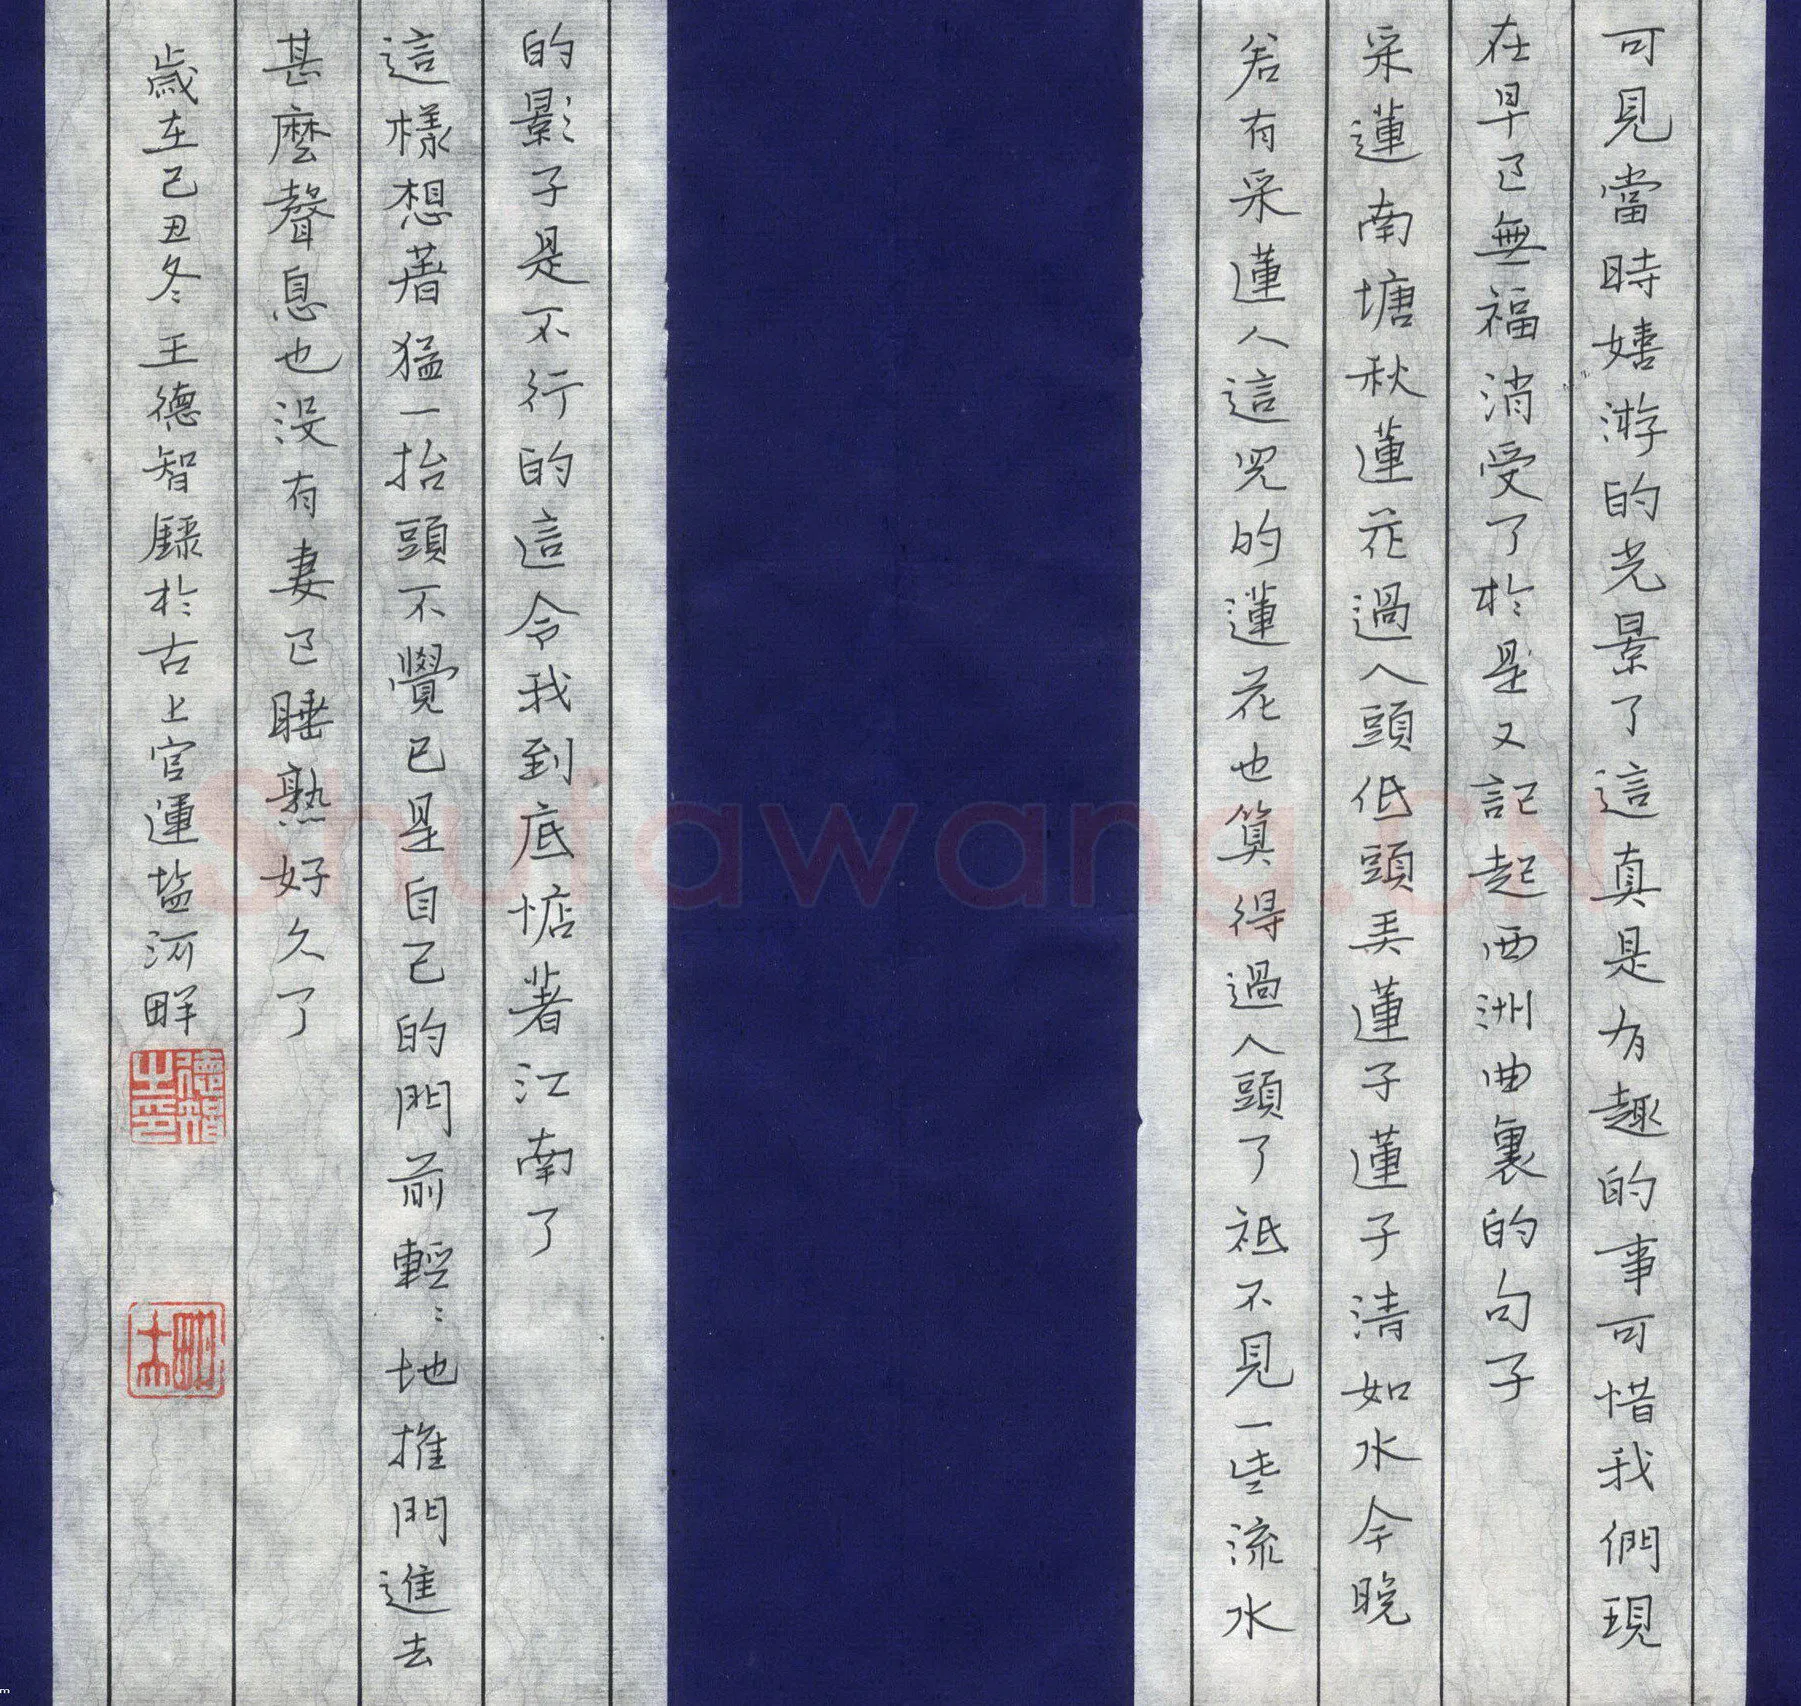 可見當時嬉游的光景了這真是有趣的事可惜我們現
在早已無福消受了於是又記起西洲曲裏的句子
采蓮南塘秋蓮花過人頭低頭弄蓮子蓮子清如水今晚
若有采蓮人這兒的蓮花也算得過人頭了祗不見一些流水
的影子是不行的這令我到底惦著江南了
這樣想著猛一抬頭不覺已是自己的門前輕〻地推門進去
甚麼聲息也没有妻已睡熟好久了
歲在己丑冬王德智録於古上官運塩河畔
德智之印
Shufawang.CN